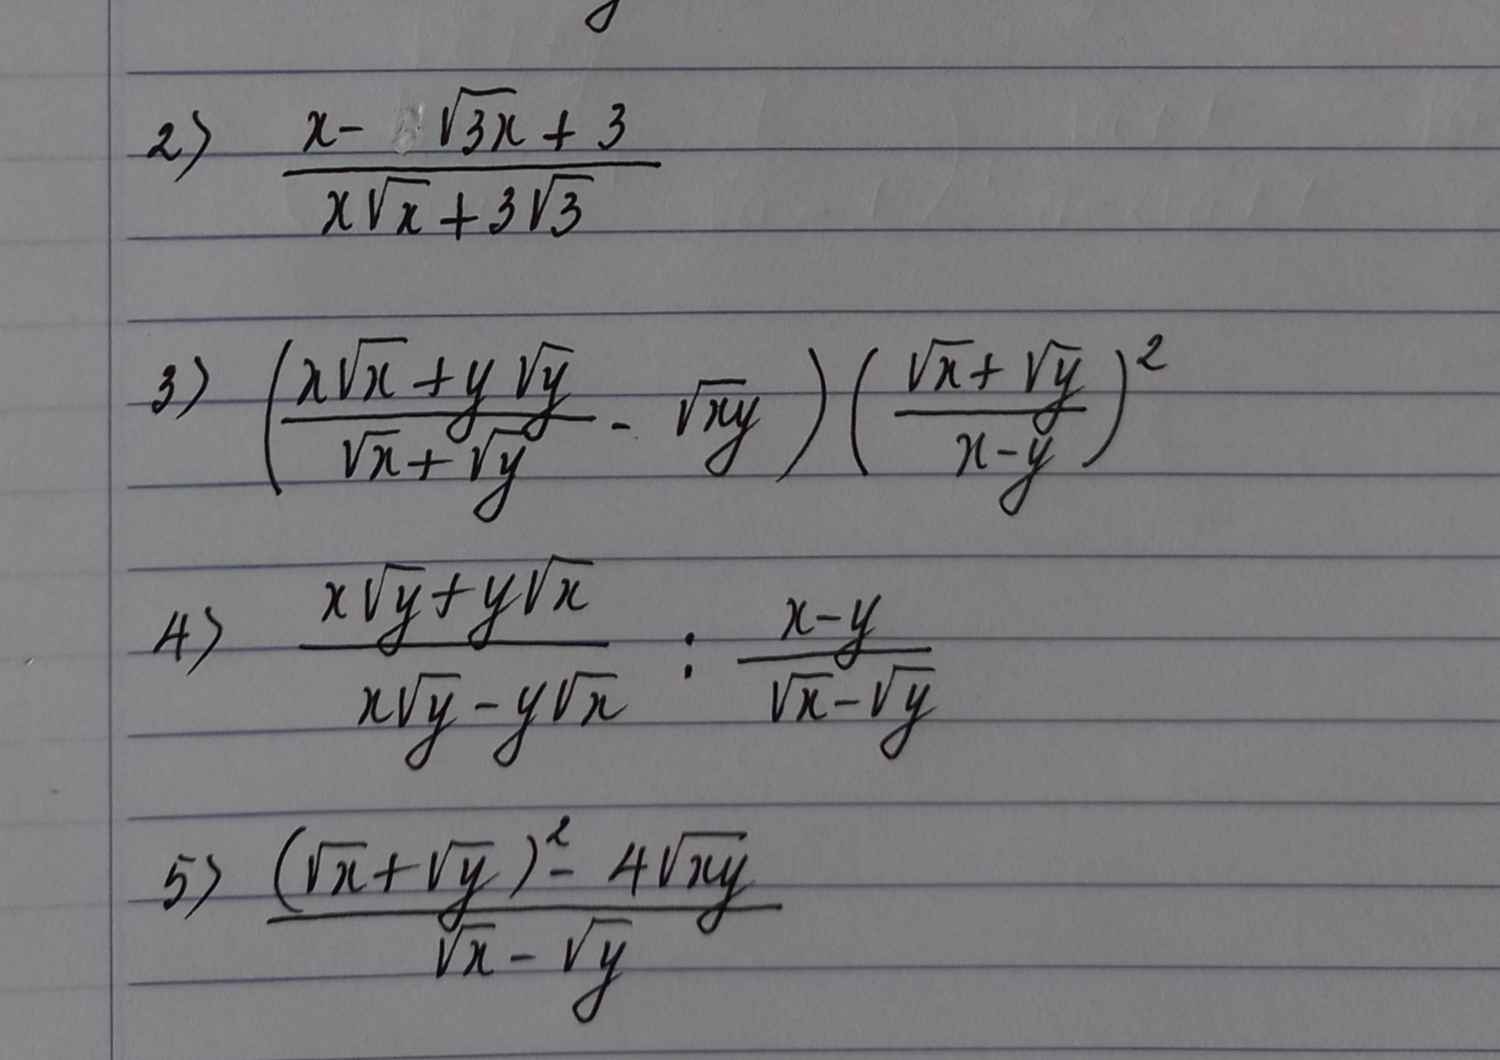 2) \frac{x - \sqrt{3x} + 3}{x\sqrt{x} + 3\sqrt{3}}
3) \left( \frac{x\sqrt{x} + y\sqrt{y}}{\sqrt{x} + \sqrt{y}} - \sqrt{xy} \right) \left( \frac{\sqrt{x} + \sqrt{y}}{x - y} \right)^2
4) \frac{x\sqrt{y} + y\sqrt{x}}{x\sqrt{y} - y\sqrt{x}} : \frac{x - y}{\sqrt{x} - \sqrt{y}}
5) \frac{(\sqrt{x} + \sqrt{y})^2 - 4\sqrt{xy}}{\sqrt{x} - \sqrt{y}}